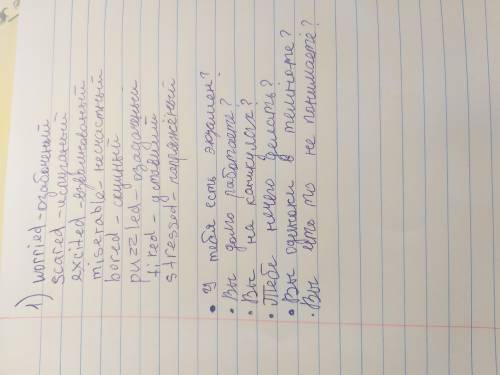 1) worried - озабоченный
scared - испуганный
excited - взволнованный
miserable - несчастный
bored - скучный
puzzled - озадаченый
tired - уставший
stressed - напряжёный
• У тебя есть экзамен?
• Вы долго работаете?
• Вы на каникулах?
• Тебе нечего делать?
• Вы одиноки в темноте?
• Вы что то не понимаете?